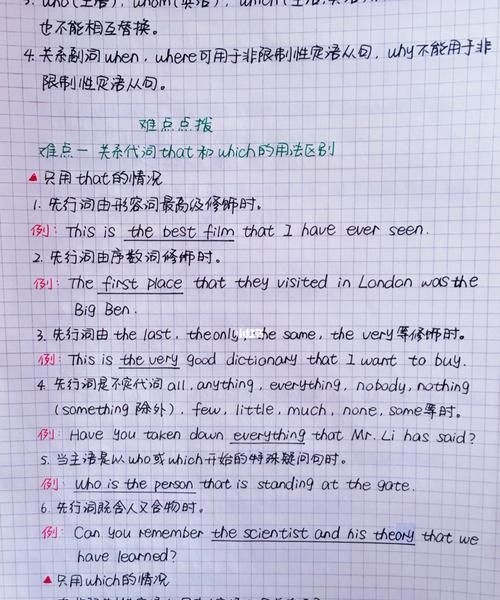 也不能相互替换。
4. 关系副词when, where可用于非限制性定语从句, why不能用于非
限制性定语从句。
难点点拨
难点一 关系代词that和which的用法区别
▲只用that的情况
1. 先行词由形容词最高级修饰时。
例: This is the best film that I have ever seen.
2. 先行词由序数词修饰时。
例: The first place that they visited in London was the
Big Ben.
3. 先行词由 the last, the only, the same, the very等修饰时。
例: This is the very good dictionary that I want to buy.
4. 先行词是不定代词 all, anything, everything, nobody, nothing
(something 除外), few, little, much, none, some等时。
例: Have you taken down everything that Mr. Li has said?
5. 当主语是以who或which开始的特殊疑问句时。
例: Who is the person that is standing at the gate.
6. 先行词既含人又含物时。
例: Can you remember the scientist and his theory that we
have learned?
▲只用which的情况